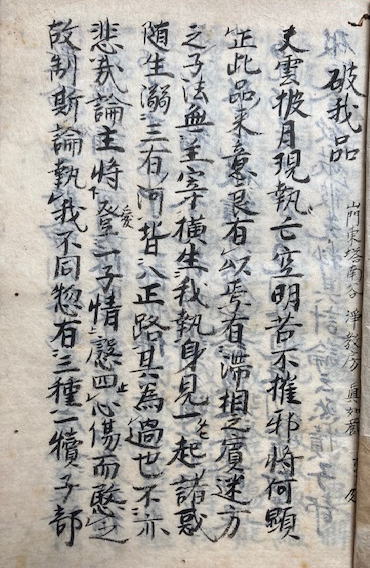 破我品
山門東塔南谷 淨教坊 真如蔵
夫雲披月現執亡空明若不推邪將何顯
正此品来意良有以焉有滞相之賓迷方
之子法無主宰横生我執身見一起諸惑
随生溺三有河背八正路其為過也不亦
悲哉論主將登一子情慇四心傷而愍之
故制斯論執我不同惣有三種一犢子部